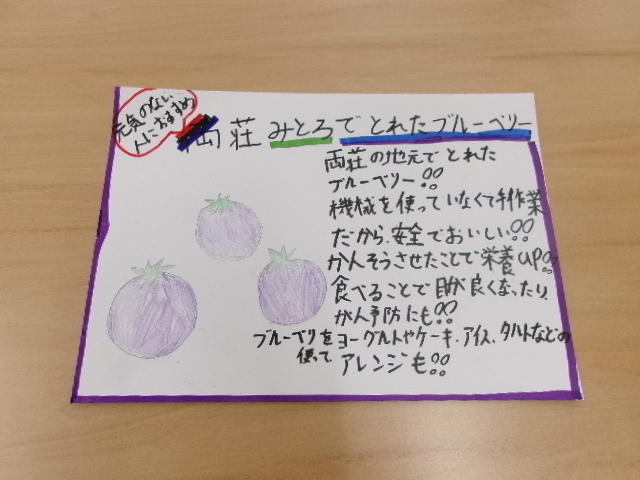 元気のない
人におすすめ
両荘みとろでとれたブルーベリー
両荘の地元でとれた
ブルーベリー!!
機械を使っていなくて手作業
だから、安全でおいしい!!
かんそうさせたことで栄養UP!!
食べることで目が良くなったり、
がん予防にも!!
ブルーベリをヨーグルトやケーキ、アイス、タルトなどの
使って アレンジも!!